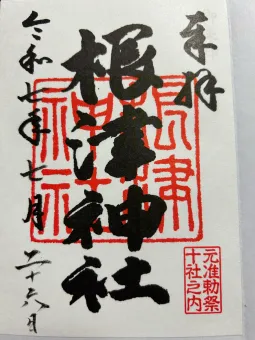 奉拝
根津神社
根津神社
令和七年七月二十六日
元准勅祭
十社之内